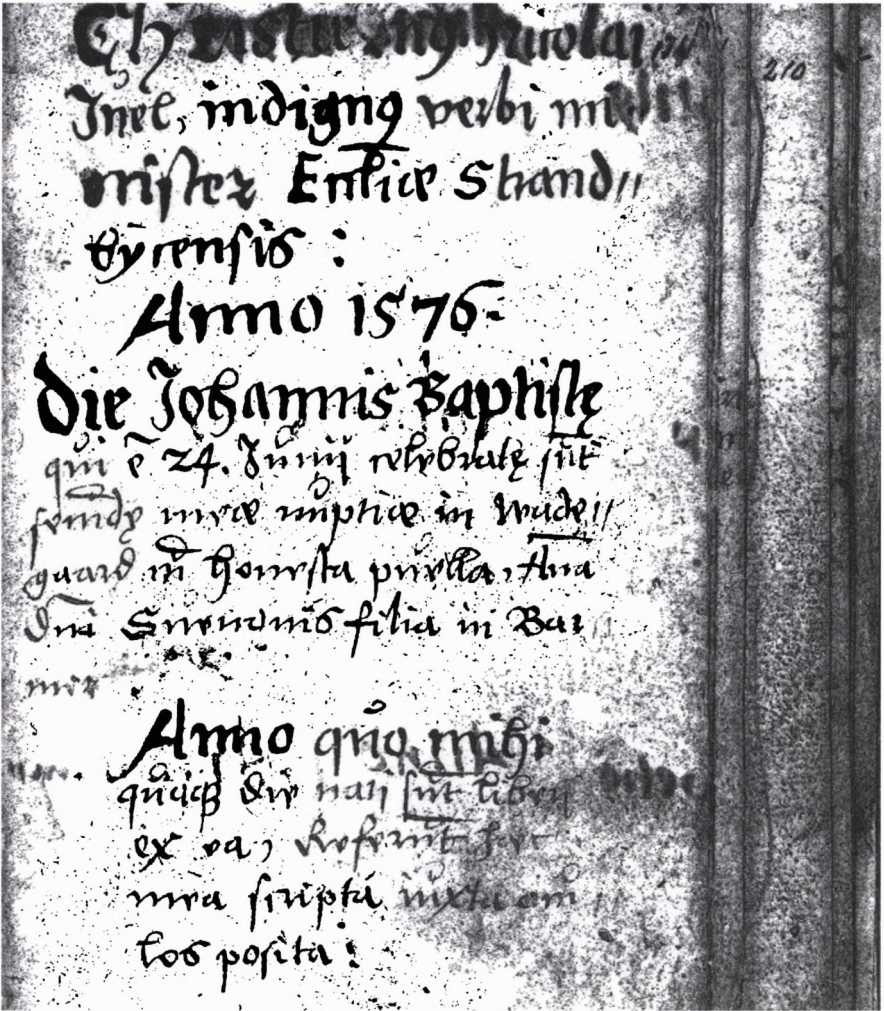 Christiernꝰ Nicolai
210
Juel, indignꝰ verbi mi
nister Ecclīæ Strand//
bycensis :
Anno 1576:
Die Johannis Baptistę
qui ē 24. Junij celebratę sūt
secūdę meæ nuptiæ in Wade//
gaard cū honesta puella, Ana
Dnī Suenonis filia in Bar
mer
Anno quo mihi
quoqꝫ die nati sūt liberi
ex ea, Referūt hec
mea scripta iuxta
los posita :